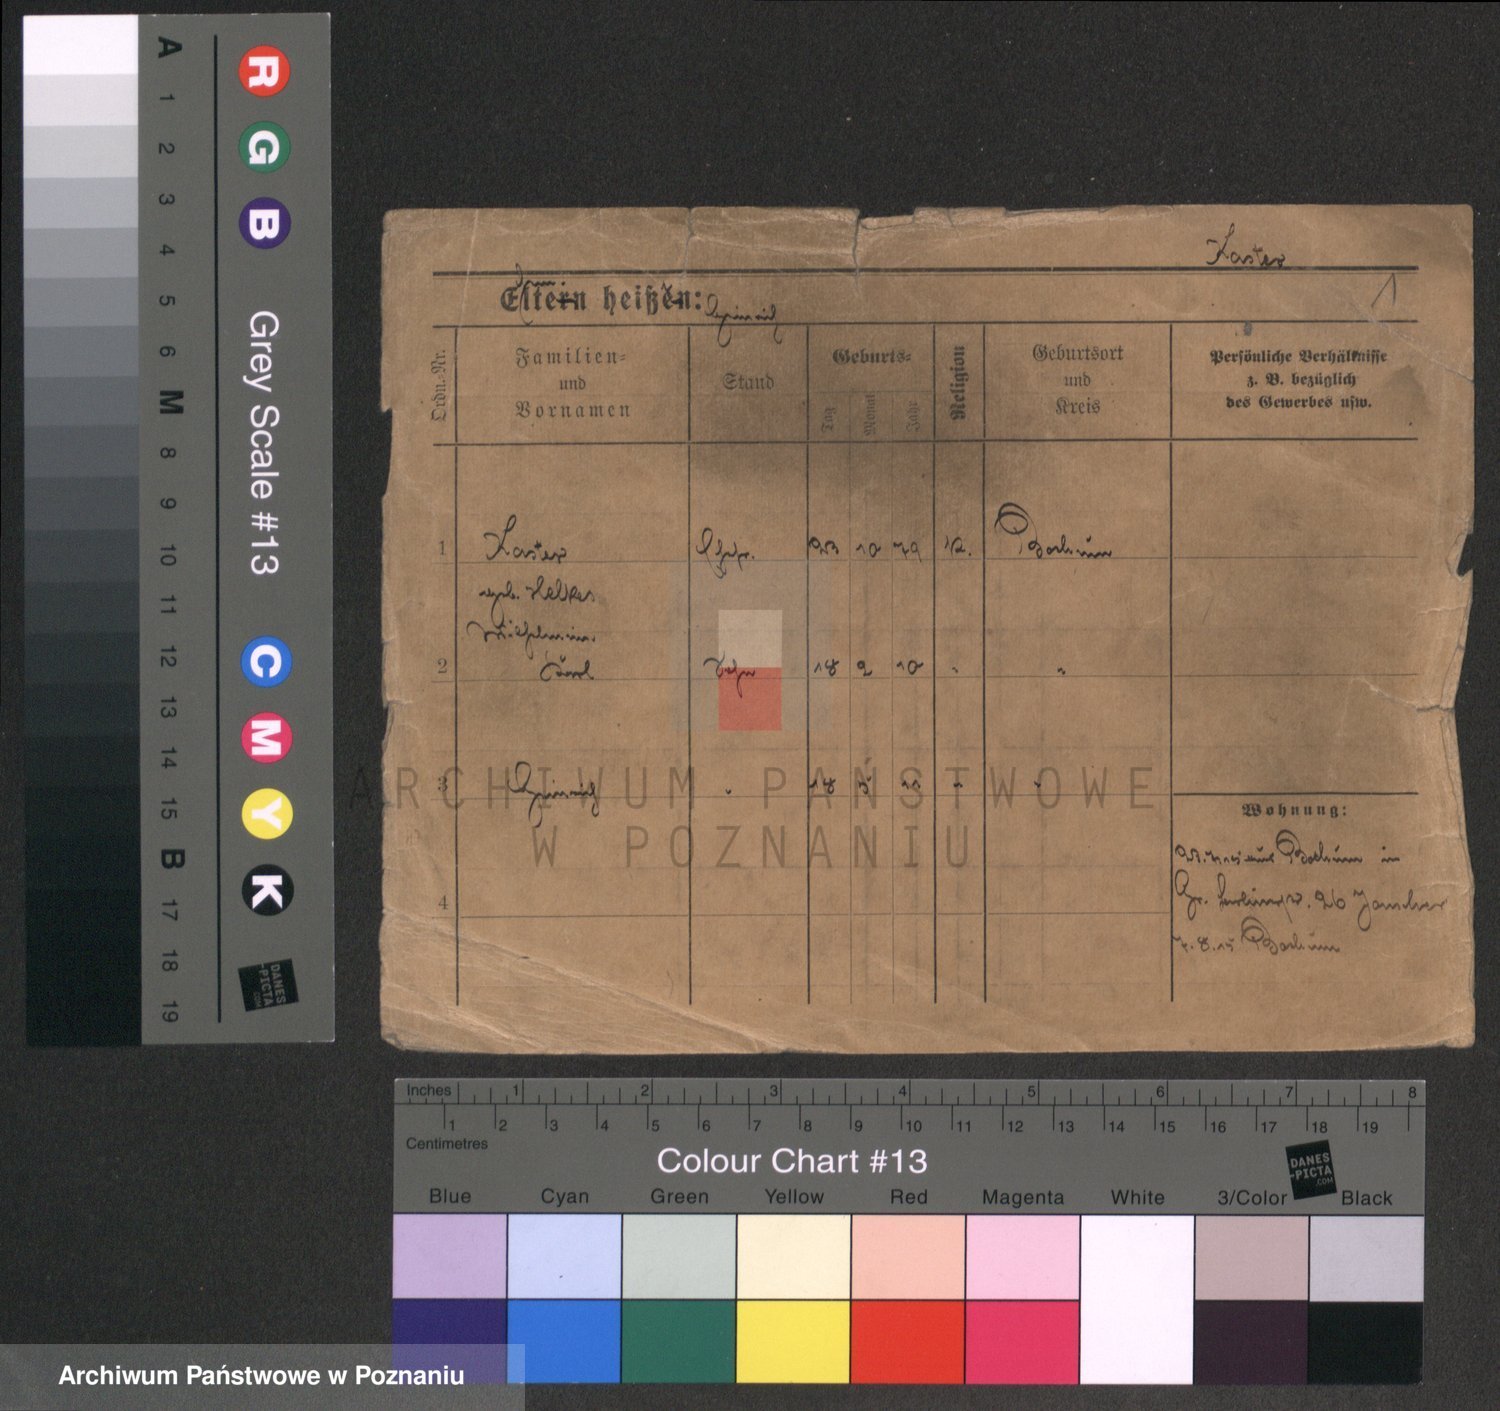 A
1
2
3
4
5
6
M
8
9
10
11
12
13
14
15
B
17
18
19
R
G
B
Grey Scale #13
C
M
Y
K
DANES
-PICTA
.COM
Kaster
1
Eltern heißen:
Heinrich
Ordn.-Nr.
Familien=
und
Vornamen
Stand
Geburts=
Tag
Monat
Jahr
Religion
Geburtsort
und
Kreis
Persönliche Verhältnisse
z. B. bezüglich
des Gewerbes usw.
1 Kaster 10 79 K. Bochum
geb.
Wilhelmine
2 Carl Sohn 18 2 10 " "
3 Heinrich " 18 5 " "
4
Wohnung:
Bochum in
Gr. 26
7.8.15 Bochum
ARCHIWUM PAŃSTWOWE
W POZNANIU
Inches 1 2 3 4 5 6 7 8
1 2 3 4 5 6 7 8 9 10 11 12 13 14 15 16 17 18 19
Centimetres
Colour Chart #13
DANES
-PICTA
.COM
Blue Cyan Green Yellow Red Magenta White 3/Color Black
Archiwum Państwowe w Poznaniu